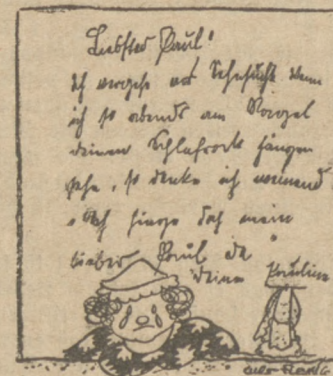 Liebster Paul!
Ich vergehe vor Sehnsucht wenn
ich so abends am Naegel
deinen Schlafrock hängen
sehe, so denke ich weinend
"Ach hinge doch mein
lieber Paul da"
Deine Pauline